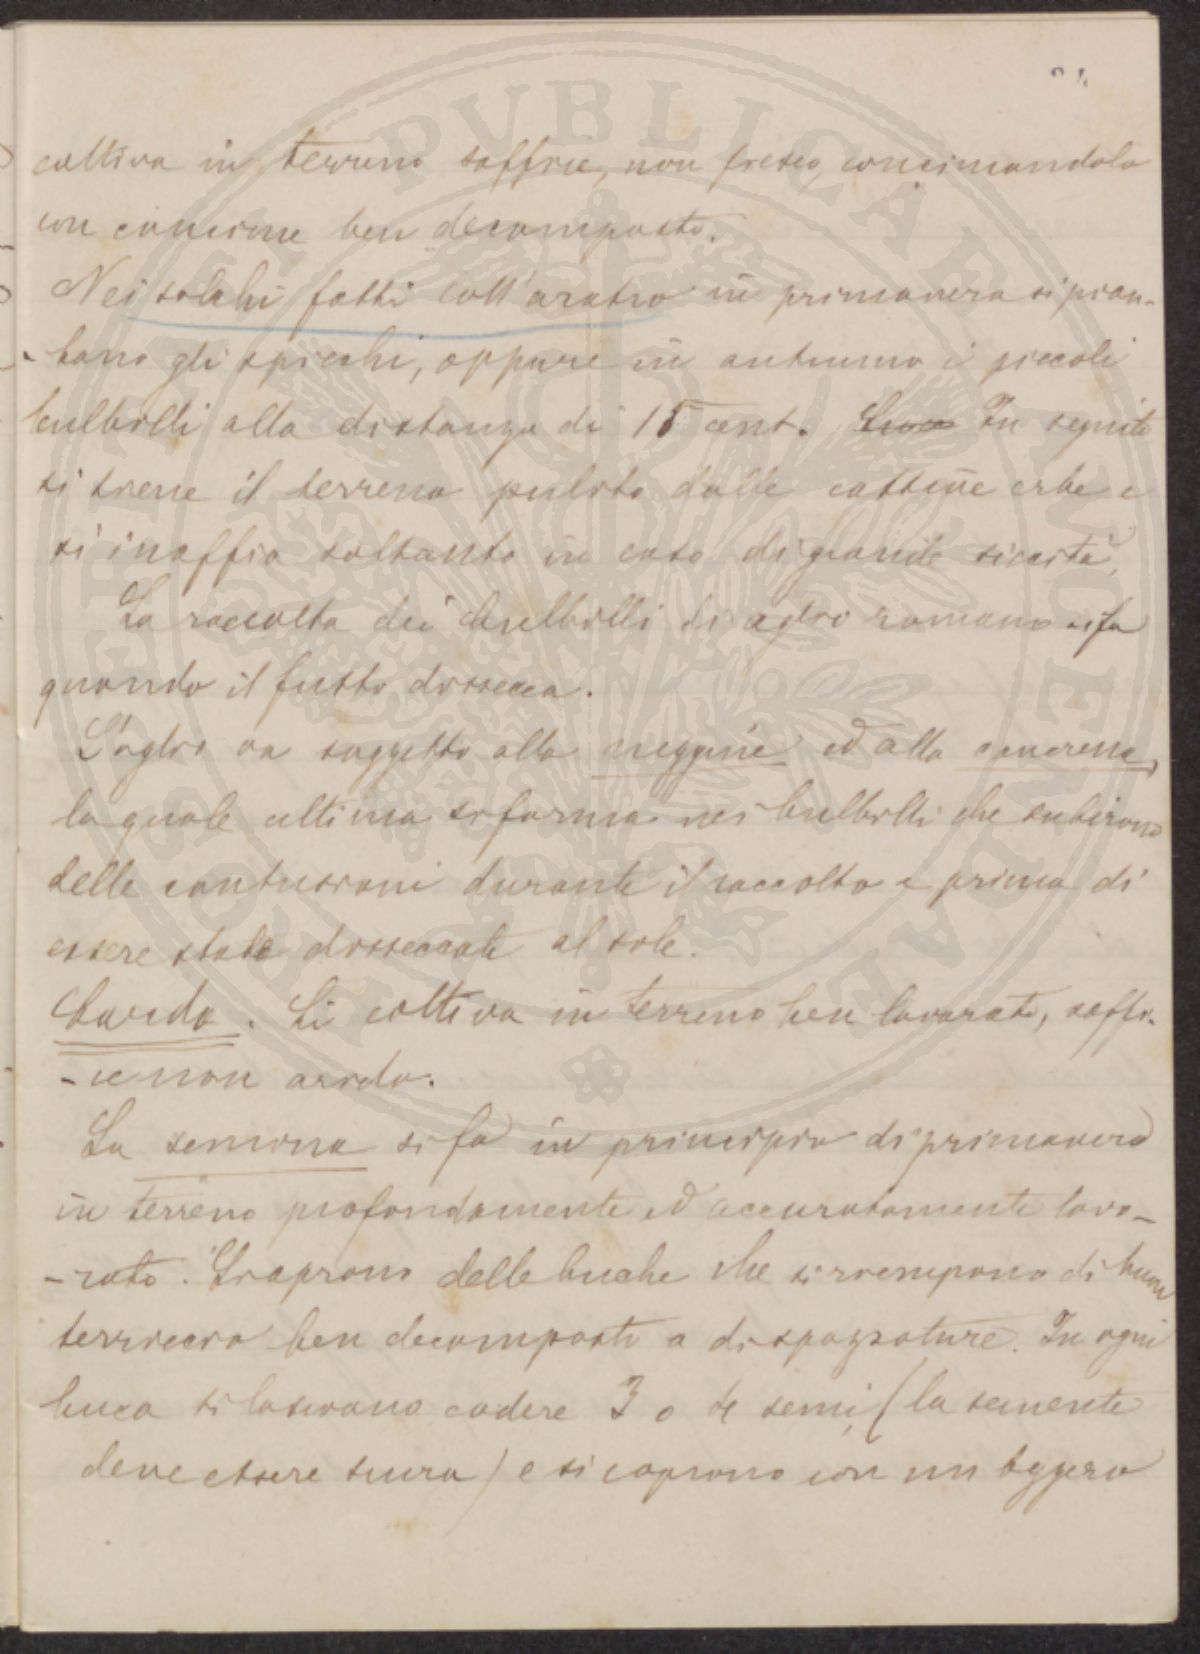 coltiva in terreno soffice, non fresco, concimandolo
con concime ben decomposto.
Nei solchi fatti coll'aratro in primavera si pian-
-tano gli spicchi, oppure in autunno i piccoli
bulbilli alla distanza di 15 cent. In seguito
si tiene il terreno pulito dalle cattive erbe e
si inaffia soltanto in caso di grande siccità.
La raccolta dei bulbilli di aglio romano si fa
quando il fusto dissecca.
L'aglio va soggetto alla ruggine ed alla cancrena,
la quale ultima si forma nei bulbilli che subirono
delle contusioni durante il raccolto e prima di
essere state disseccati al sole.
Cardo. Si coltiva in terreno ben lavorato, soffi-
-ce non arido.
La semina si fa in principio di primavera
in terreno profondamente ed accuratamente lavo-
-rato. Si aprono delle buche che si riempono di buon
terriccio ben decomposto o di spazzature. In ogni
buca si lasciano cadere 3 o 4 semi, (la semente
deve essere sicura) e si coprono con un leggero
PVBLICAE